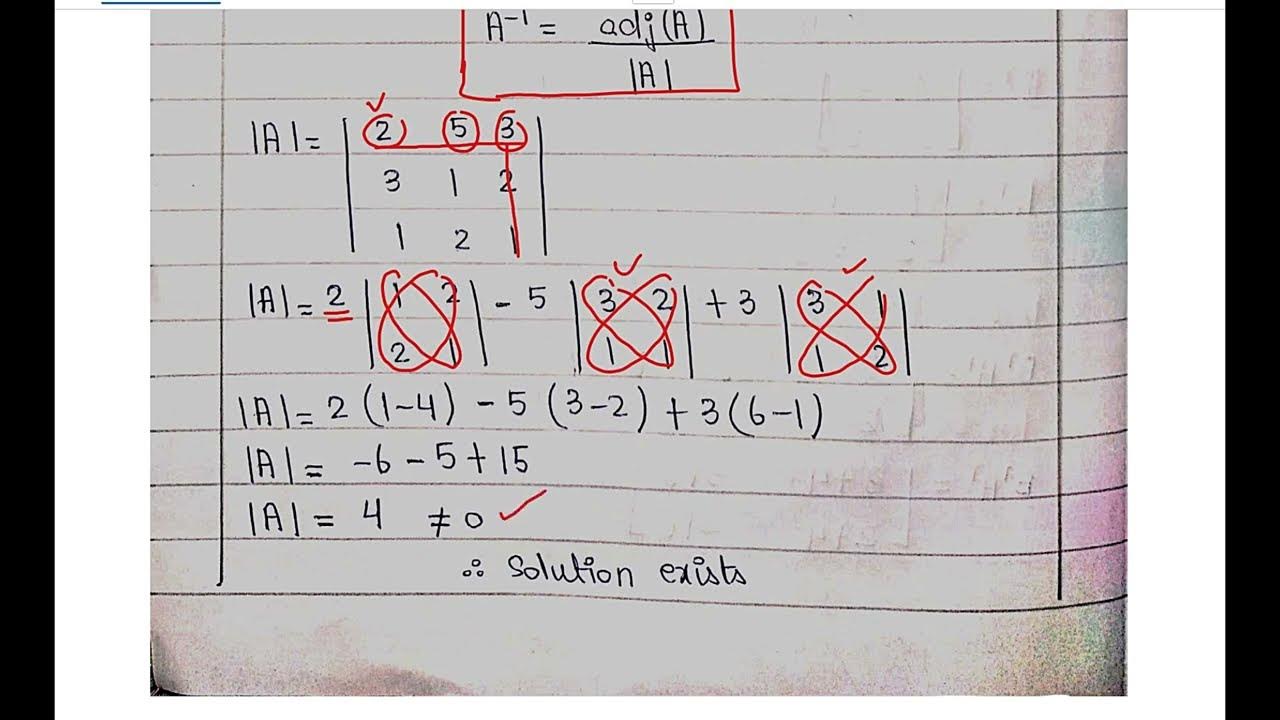 A⁻¹ = adj(A)
|A|
|A| = | 2 5 3 |
| 3 1 2 |
| 1 2 1 |
|A| = 2 | 1 2 | - 5 | 3 2 | + 3 | 3 1 |
| 2 1 | | 1 1 | | 1 2 |
|A| = 2 (1-4) - 5 (3-2) + 3 (6-1)
|A| = -6 - 5 + 15
|A| = 4 ≠ 0 ✓
∴ Solution exists